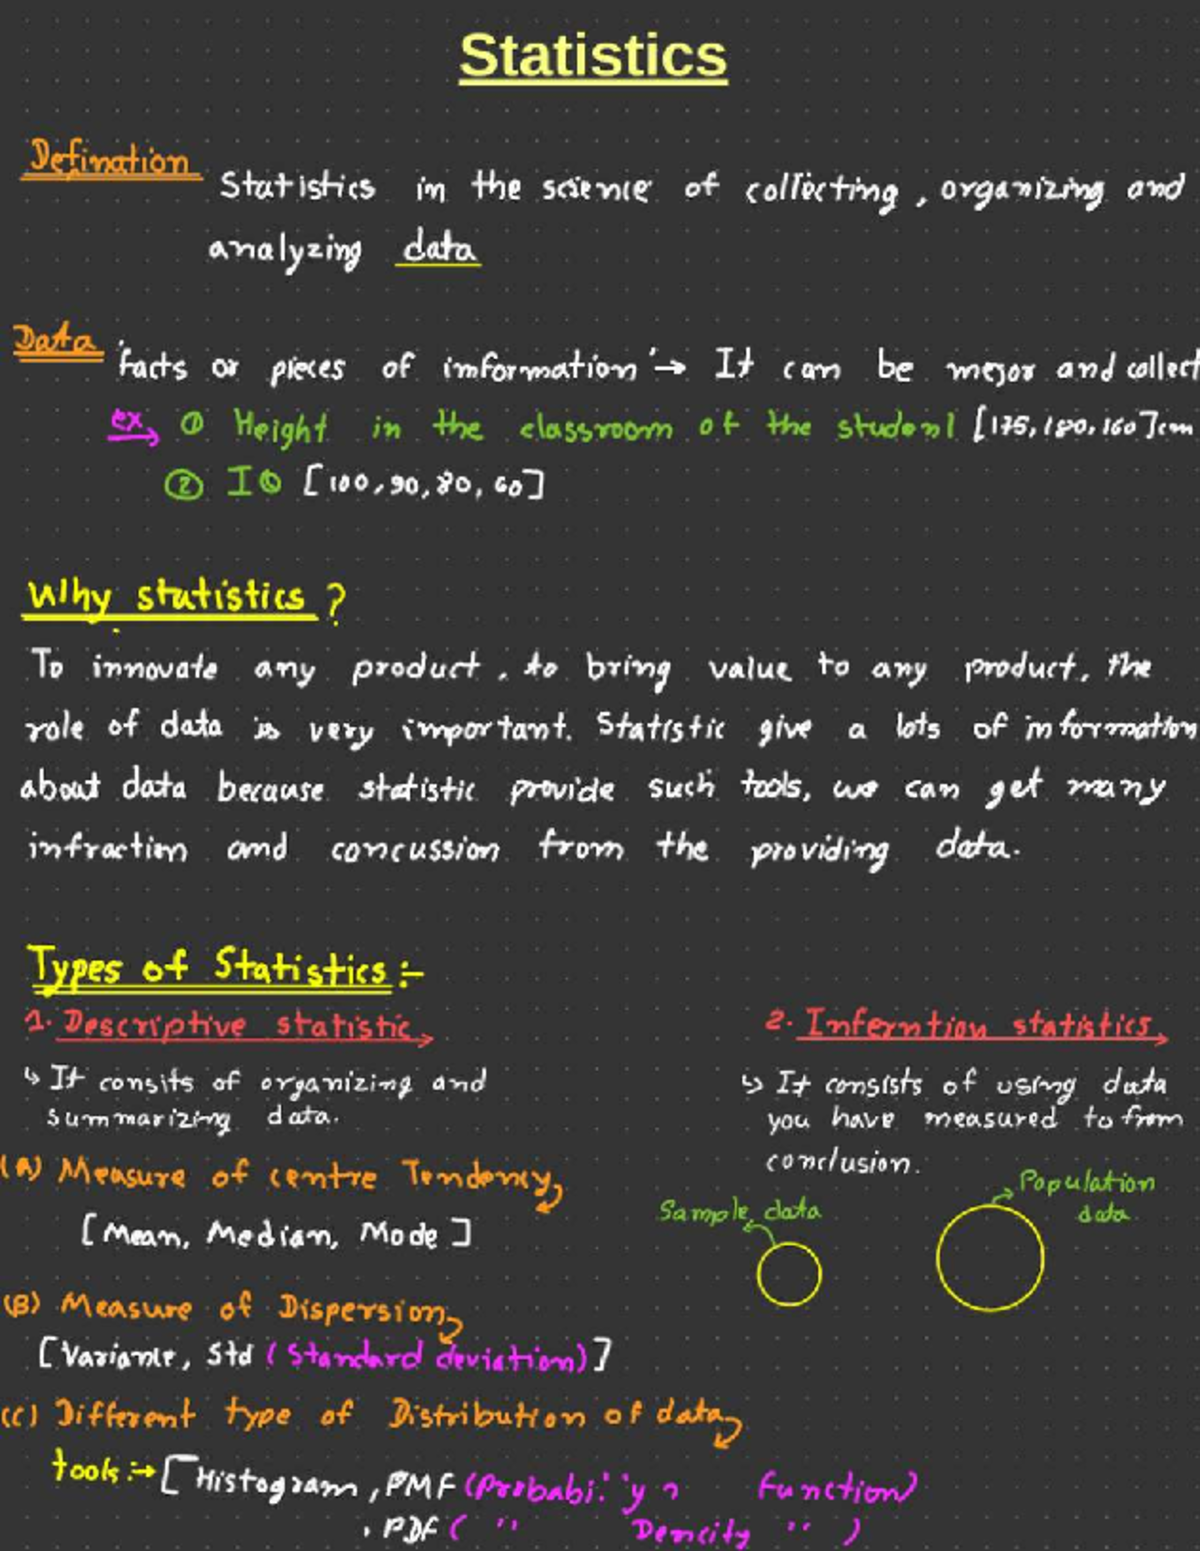 Statistics
Defination
Statistics in the science of collecting, organizing and
analyzing data
Data
'facts or pieces of information' → It can be mejor and collect
ex ① Height in the classroom of the student [175, 180, 160] cm
② IQ [100, 90, 80, 60]
Why statistics?
To innovate any product, to bring value to any product, the
role of data is very important. Statistic give a lots of information
about data because statistic provide such tools, we can get many
infraction and concussion from the providing data.
Types of Statistics :-
1. Descriptive statistic
↳ It consits of organizing and
summarizing data.
(A) Measure of centre Tendency
[Mean, Median, Mode]
(B) Measure of Dispersion
[Variance, Std (Standard deviation)]
(C) Different type of Distribution of data
tools :→ [Histogram, PMF ( function)
, PDF ( " Dencity " )
2. Inferntion statistics
↳ It consists of using data
you have measured to from
conclusion.
Sample data
Population
data